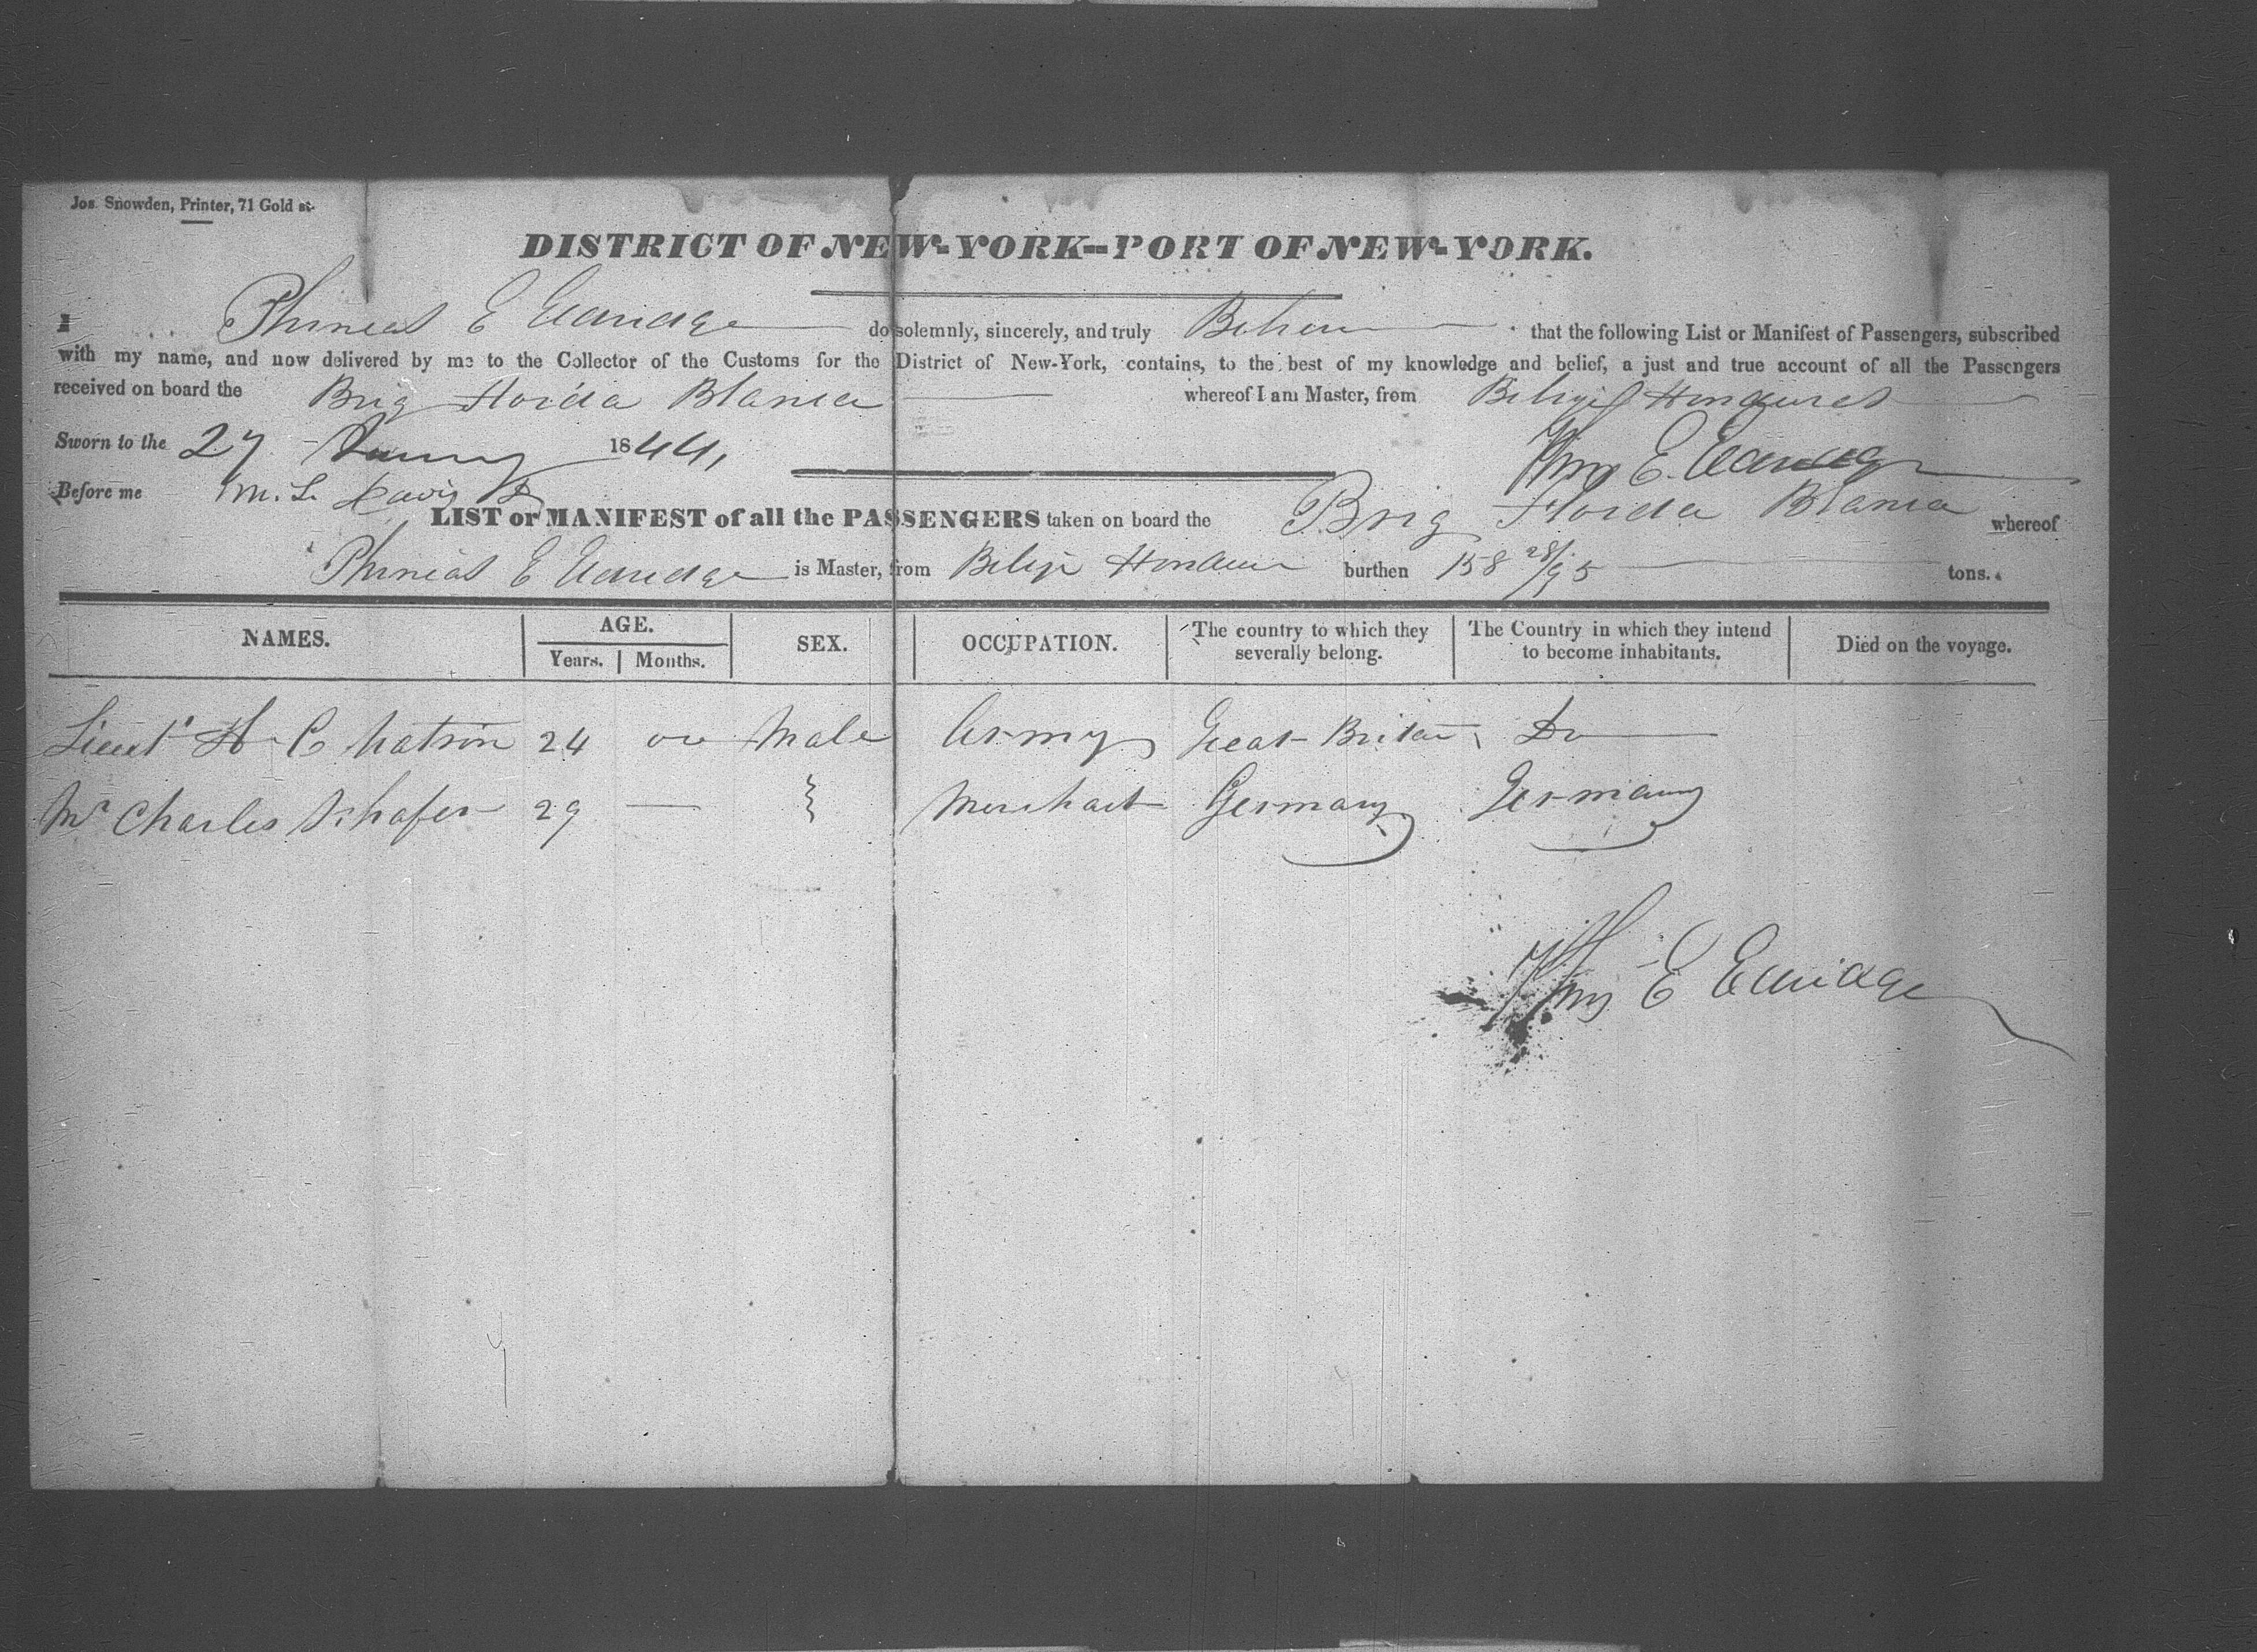 Jos. Snowden, Printer, 71 Gold st.
DISTRICT OF NEW-YORK--PORT OF NEW-YORK.
I Phineas E Eldridge do solemnly, sincerely, and truly that the following List or Manifest of Passengers, subscribed
with my name, and now delivered by me to the Collector of the Customs for the District of New-York, contains, to the best of my knowledge and belief, a just and true account of all the Passengers
received on board the Brig Florida Blanca whereof I am Master, from Honduras
Sworn to the 27 1844,
Phins E. Eldridge
Before me M. L. Davis
LIST or MANIFEST of all the PASSENGERS taken on board the Brig Florida Blanca whereof
Phineas E Eldridge is Master, from burthen 158 28/95 tons.
NAMES. AGE. Years. Months. SEX. OCCUPATION. The country to which they severally belong. The Country in which they intend to become inhabitants. Died on the voyage.
Lieut H C 24 Male Army Great Britain Do
Mr Charles Schafer 29 — Merchant Germany Germany
Phins E Eldridge